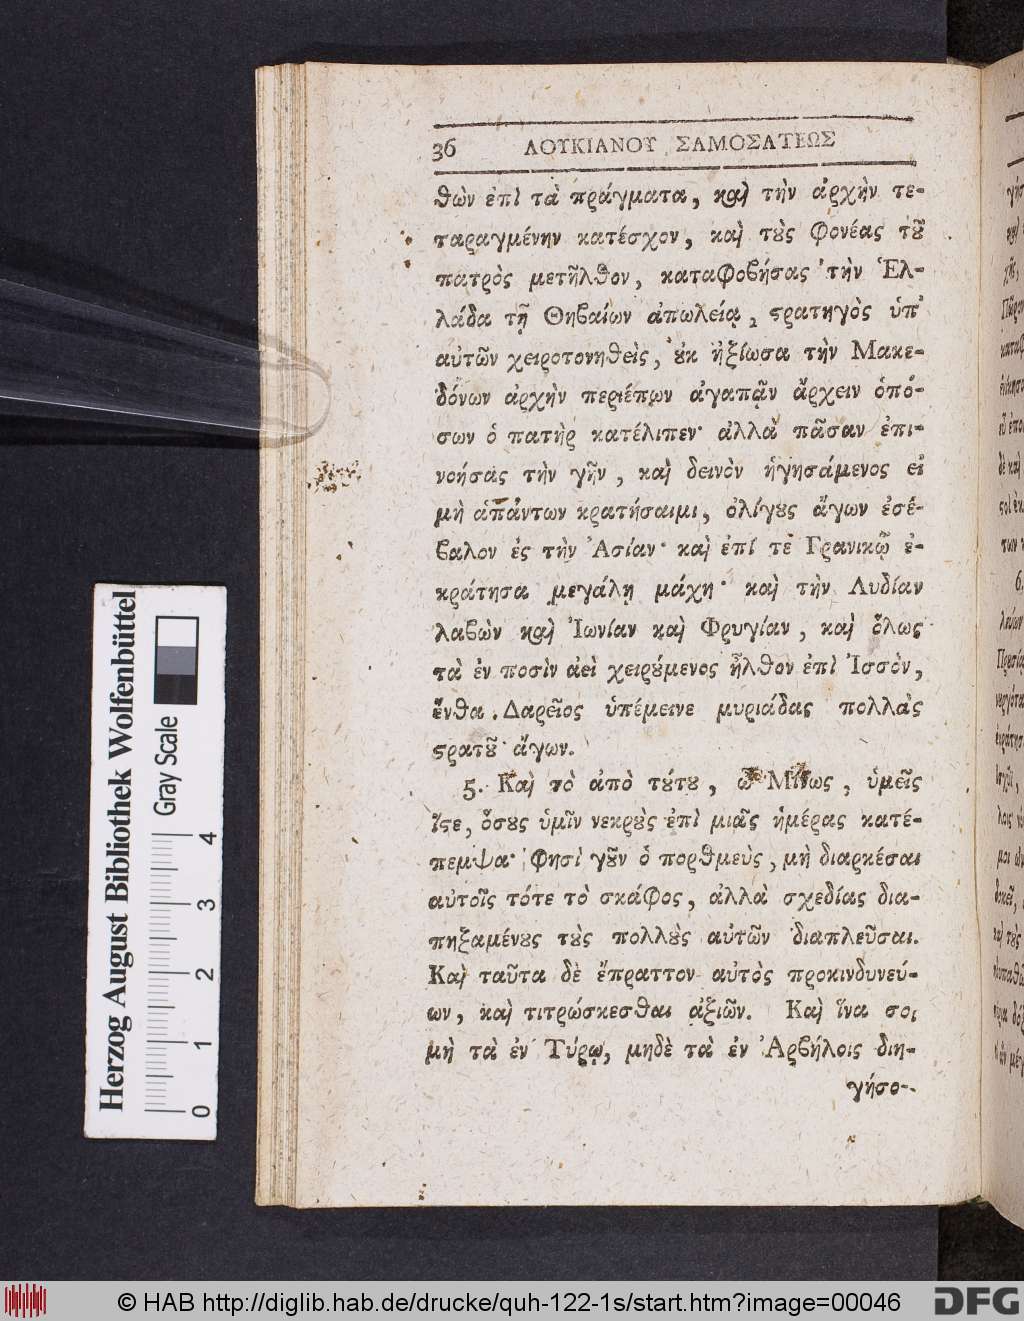 36 ΛΟΥΚΙΑΝΟΥ ΣΑΜΟΣΑΤΕΩΣ
θὼν ἐπὶ τὰ πράγματα, καὶ τὴν ἀρχὴν τε-
ταραγμένην κατέσχον, καὶ τȣ̀ς φονέας τȣ͂
πατρὸς μετῆλθον, καταφοβήσας τὴν Ἑλ-
λάδα τῇ Θηβαίων ἀπωλείᾳ, ϛρατηγὸς ὑπ᾽
αὐτῶν χειροτονηθεὶς, ȣ̓κ ἠξίωσα τὴν Μακε-
δόνων ἀρχὴν περιέπων ἀγαπᾷν ἄρχειν ὁπό-
σων ὁ πατὴρ κατέλιπεν· ἀλλὰ πᾶσαν ἐπι-
νοήσας τὴν γῆν, καὶ δεινὸν ἡγησάμενος εἰ
μὴ ἁπάντων κρατήσαιμι, ὀλίγȣς ἄγων ἐσέ-
βαλον ἐς τὴν Ἀσίαν· καὶ ἐπί τε Γρανικῷ ἐ-
κράτησα μεγάλῃ μάχῃ· καὶ τὴν Λυδίαν
λαβὼν καὶ Ἰωνίαν καὶ Φρυγίαν, καὶ ὅλως
τὰ ἐν ποσὶν ἀεὶ χειρȣ́μενος ἦλθον ἐπὶ Ἰσσὸν,
ἔνθα Δαρεῖος ὑπέμεινε μυριάδας πολλὰς
ϛρατȣ͂ ἄγων.
5. Καὶ τὸ ἀπὸ τȣ́τȣ, ὦ Μίνως, ὑμεῖς
ἴϛε, ὅσȣς ὑμῖν νεκρȣ̀ς ἐπὶ μιᾶς ἡμέρας κατέ-
πεμψα· φησὶ γȣ͂ν ὁ πορθμεὺς, μὴ διαρκέσαι
αὐτοῖς τότε τὸ σκάφος, ἀλλὰ σχεδίας δια-
πηξαμένȣς τȣ̀ς πολλȣ̀ς αὐτῶν διαπλεῦσαι.
Καὶ ταῦτα δὲ ἔπραττον αὐτὸς προκινδυνεύ-
ων, καὶ τιτρώσκεσθαι ἀξιῶν. Καὶ ἵνα σοι
μὴ τὰ ἐν Τύρῳ, μηδὲ τὰ ἐν Ἀρβήλοις διη-
γήσο-
Herzog August Bibliothek Wolfenbüttel
Gray Scale
0 1 2 3 4
© HAB http://diglib.hab.de/drucke/quh-122-1s/start.htm?image=00046
DFG